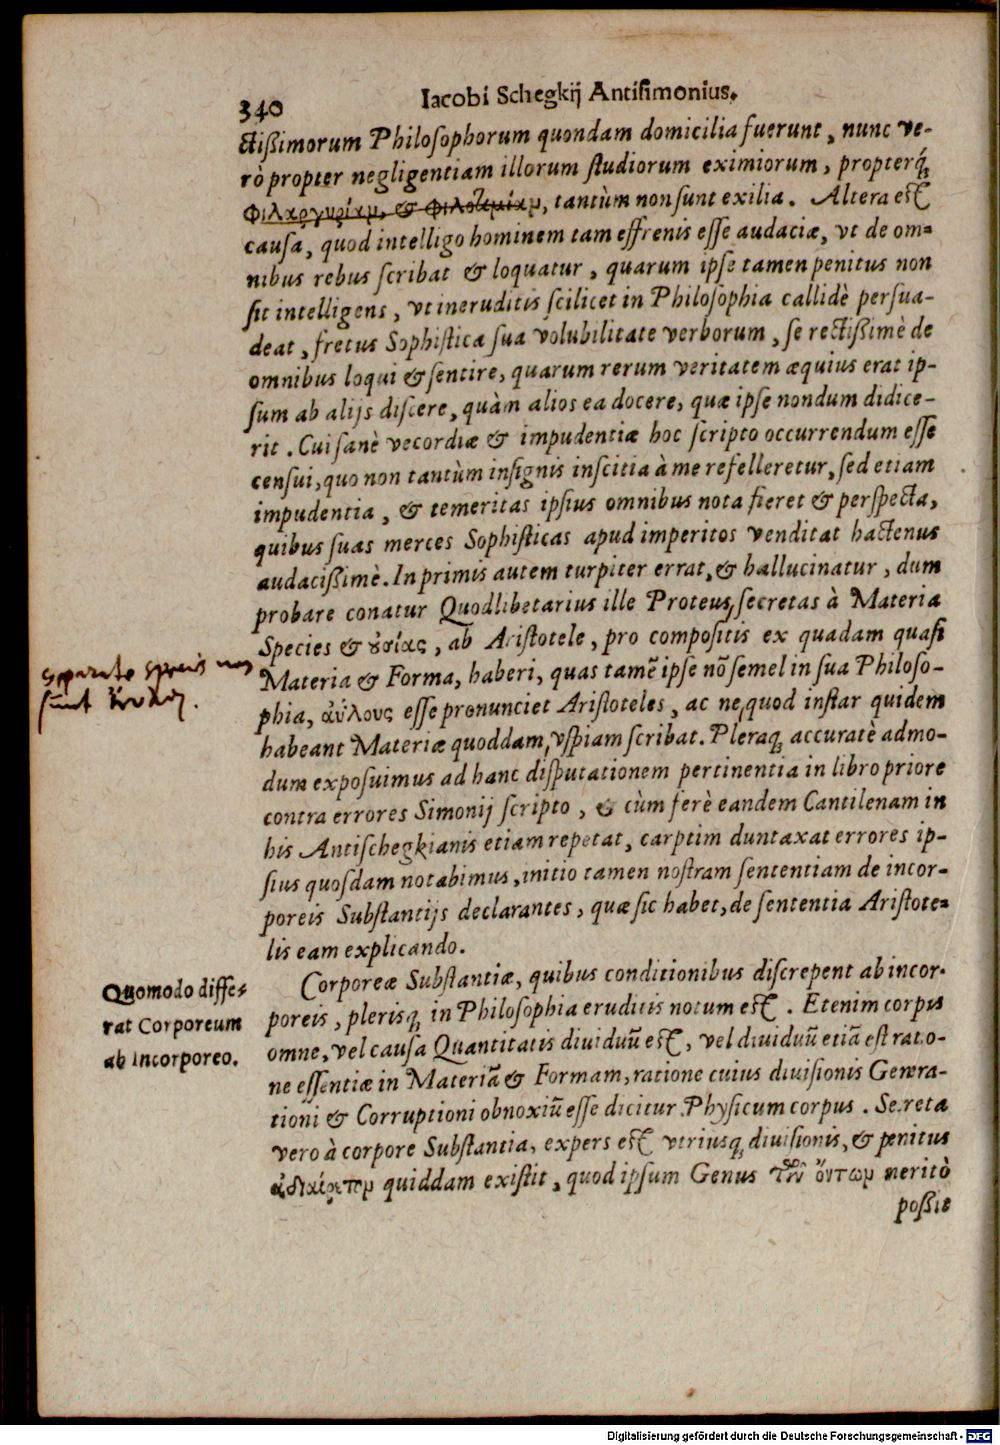 340
Iacobi Schegkij Antisimonius.
ctißimorum Philosophorum quondam domicilia fuerunt, nunc ve-
rò propter negligentiam illorum studiorum eximiorum, propterq́;
φιλαργυρίαμ, & φιλοτιμίαμ, tantùm non sunt exilia. Altera est
causa, quod intelligo hominem tam effrenis esse audaciæ, vt de om-
nibus rebus scribat & loquatur, quarum ipse tamen penitus non
sit intelligens, vt ineruditis scilicet in Philosophia callidè persua-
deat, fretus Sophistica sua volubilitate verborum, se rectißimè de
omnibus loqui & sentire, quarum rerum veritatem æquius erat ip-
sum ab alijs discere, quàm alios ea docere, quæ ipse nondum didice-
rit. Cui sanè vecordiæ & impudentiæ hoc scripto occurrendum esse
censui, quo non tantùm insignis inscitia à me refelleretur, sed etiam
impudentia, & temeritas ipsius omnibus nota fieret & perspecta,
quibus suas merces Sophisticas apud imperitos venditat hactenus
audacißimè. Inprimis autem turpiter errat, & hallucinatur, dum
probare conatur Quodlibetarius ille Proteus, secretas à Materia
Species & ȣσίας, ab Aristotele, pro compositis ex quadam quasi
Materia & Forma, haberi, quas tamẽ ipse nõ semel in sua Philoso-
phia, αὐλους esse pronunciet Aristoteles, ac ne quod instar quidem
habeant Materiæ quoddam, vspiam scribat. Pleraq; accuratè admo-
dum exposuimus ad hanc disputationem pertinentia in libro priore
contra errores Simonij scripto, & cùm ferè eandem Cantilenam in
his Antischegkianis etiam repetat, carptim duntaxat errores ip-
sius quosdam notabimus, initio tamen nostram sententiam de incor-
poreis Substantijs declarantes, quæ sic habet, de sententia Aristote-
lis eam explicando.
separate non
sunt
Quomodo diffe-
rat Corporeum
ab Incorporeo.
Corporeæ Substantiæ, quibus conditionibus discrepent ab incor-
poreis, plerisq; in Philosophia eruditis notum est. Etenim corpus
omne, vel causa Quantitatis diuiduũ est, vel diuiduũ etiã est ratio-
ne essentiæ in Materiã & Formam, ratione cuius diuisionis Genera-
tioni & Corruptioni obnoxiũ esse dicitur Physicum corpus. Secreta
vero à corpore Substantia, expers est vtriusq; diuisionis, & penitus
ἀδιαίρετομ quiddam existit, quod ipsum Genus τῶν ὄντωμ meritò
poßit
Digitalisierung gefördert durch die Deutsche Forschungsgemeinschaft - DFG